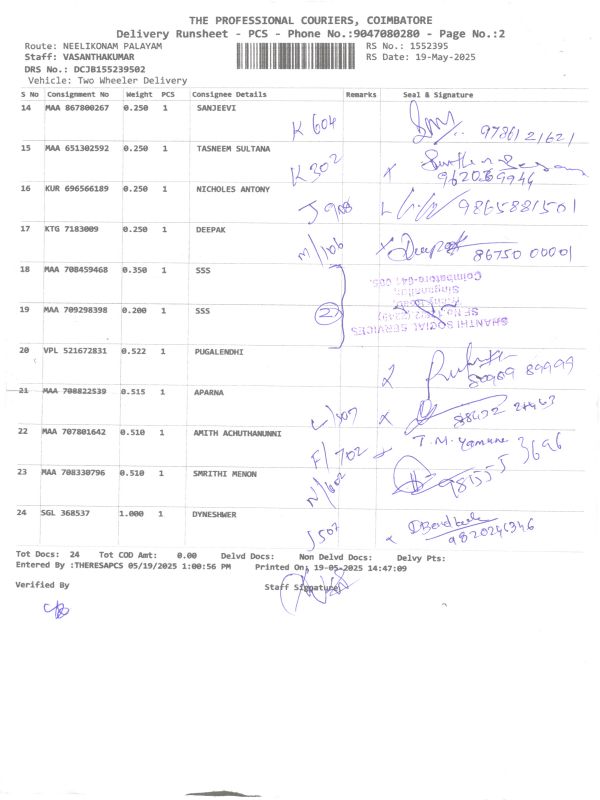 THE PROFESSIONAL COURIERS, COIMBATORE
Delivery Runsheet - PCS - Phone No.:9047080280 - Page No.:2
Route: NEELIKONAM PALAYAM RS No.: 1552395
Staff: VASANTHAKUMAR RS Date: 19-May-2025
DRS No.: DCJB155239502
Vehicle: Two Wheeler Delivery
S No Consignment No Weight PCS Consignee Details Remarks Seal & Signature
14 MAA 867800267 0.250 1 SANJEEVI
K 604
15 MAA 651302592 0.250 1 TASNEEM SULTANA
K 302
16 KUR 696566189 0.250 1 NICHOLES ANTONY
J 908 9865881501
17 KTG 7183009 0.250 1 DEEPAK
M/1106 Deepak 86750 00001
18 MAA 708459468 0.350 1 SSS
19 MAA 709298398 0.200 1 SSS
2
SHANTHI SOCIAL SERVICES
Singanallur,
Coimbatore-641 005.
20 VPL 521672831 0.522 1 PUGALENDHI
89999
21 MAA 708822539 0.515 1 APARNA
22 MAA 707801642 0.510 1 AMITH ACHUTHANUNNI
F/702 T.M. Yamune
23 MAA 708330796 0.510 1 SMRITHI MENON
N/602
24 SGL 368537 1.000 1 DYNESHWER
J 507 9820246346
Tot Docs: 24 Tot COD Amt: 0.00 Delvd Docs: Non Delvd Docs: Delvy Pts:
Entered By :THERESAPCS 05/19/2025 1:00:56 PM Printed On: 19-05-2025 14:47:09
Verified By Staff Signature